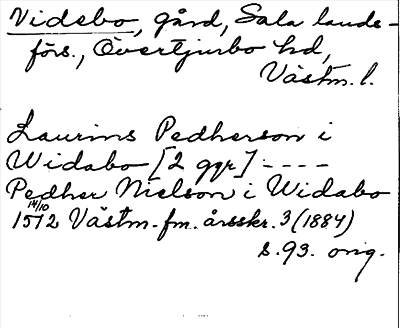 Videbo, gård, Sala lands-
förs., Övertjurbo hd,
Västm. l.
Laurins Pedherson i
Widabo [2 ggr] - - - -
Pedher Nielson i Widabo
14/10
1572 Västm. fm. årsskr. 3 (1884)
s. 93. orig.